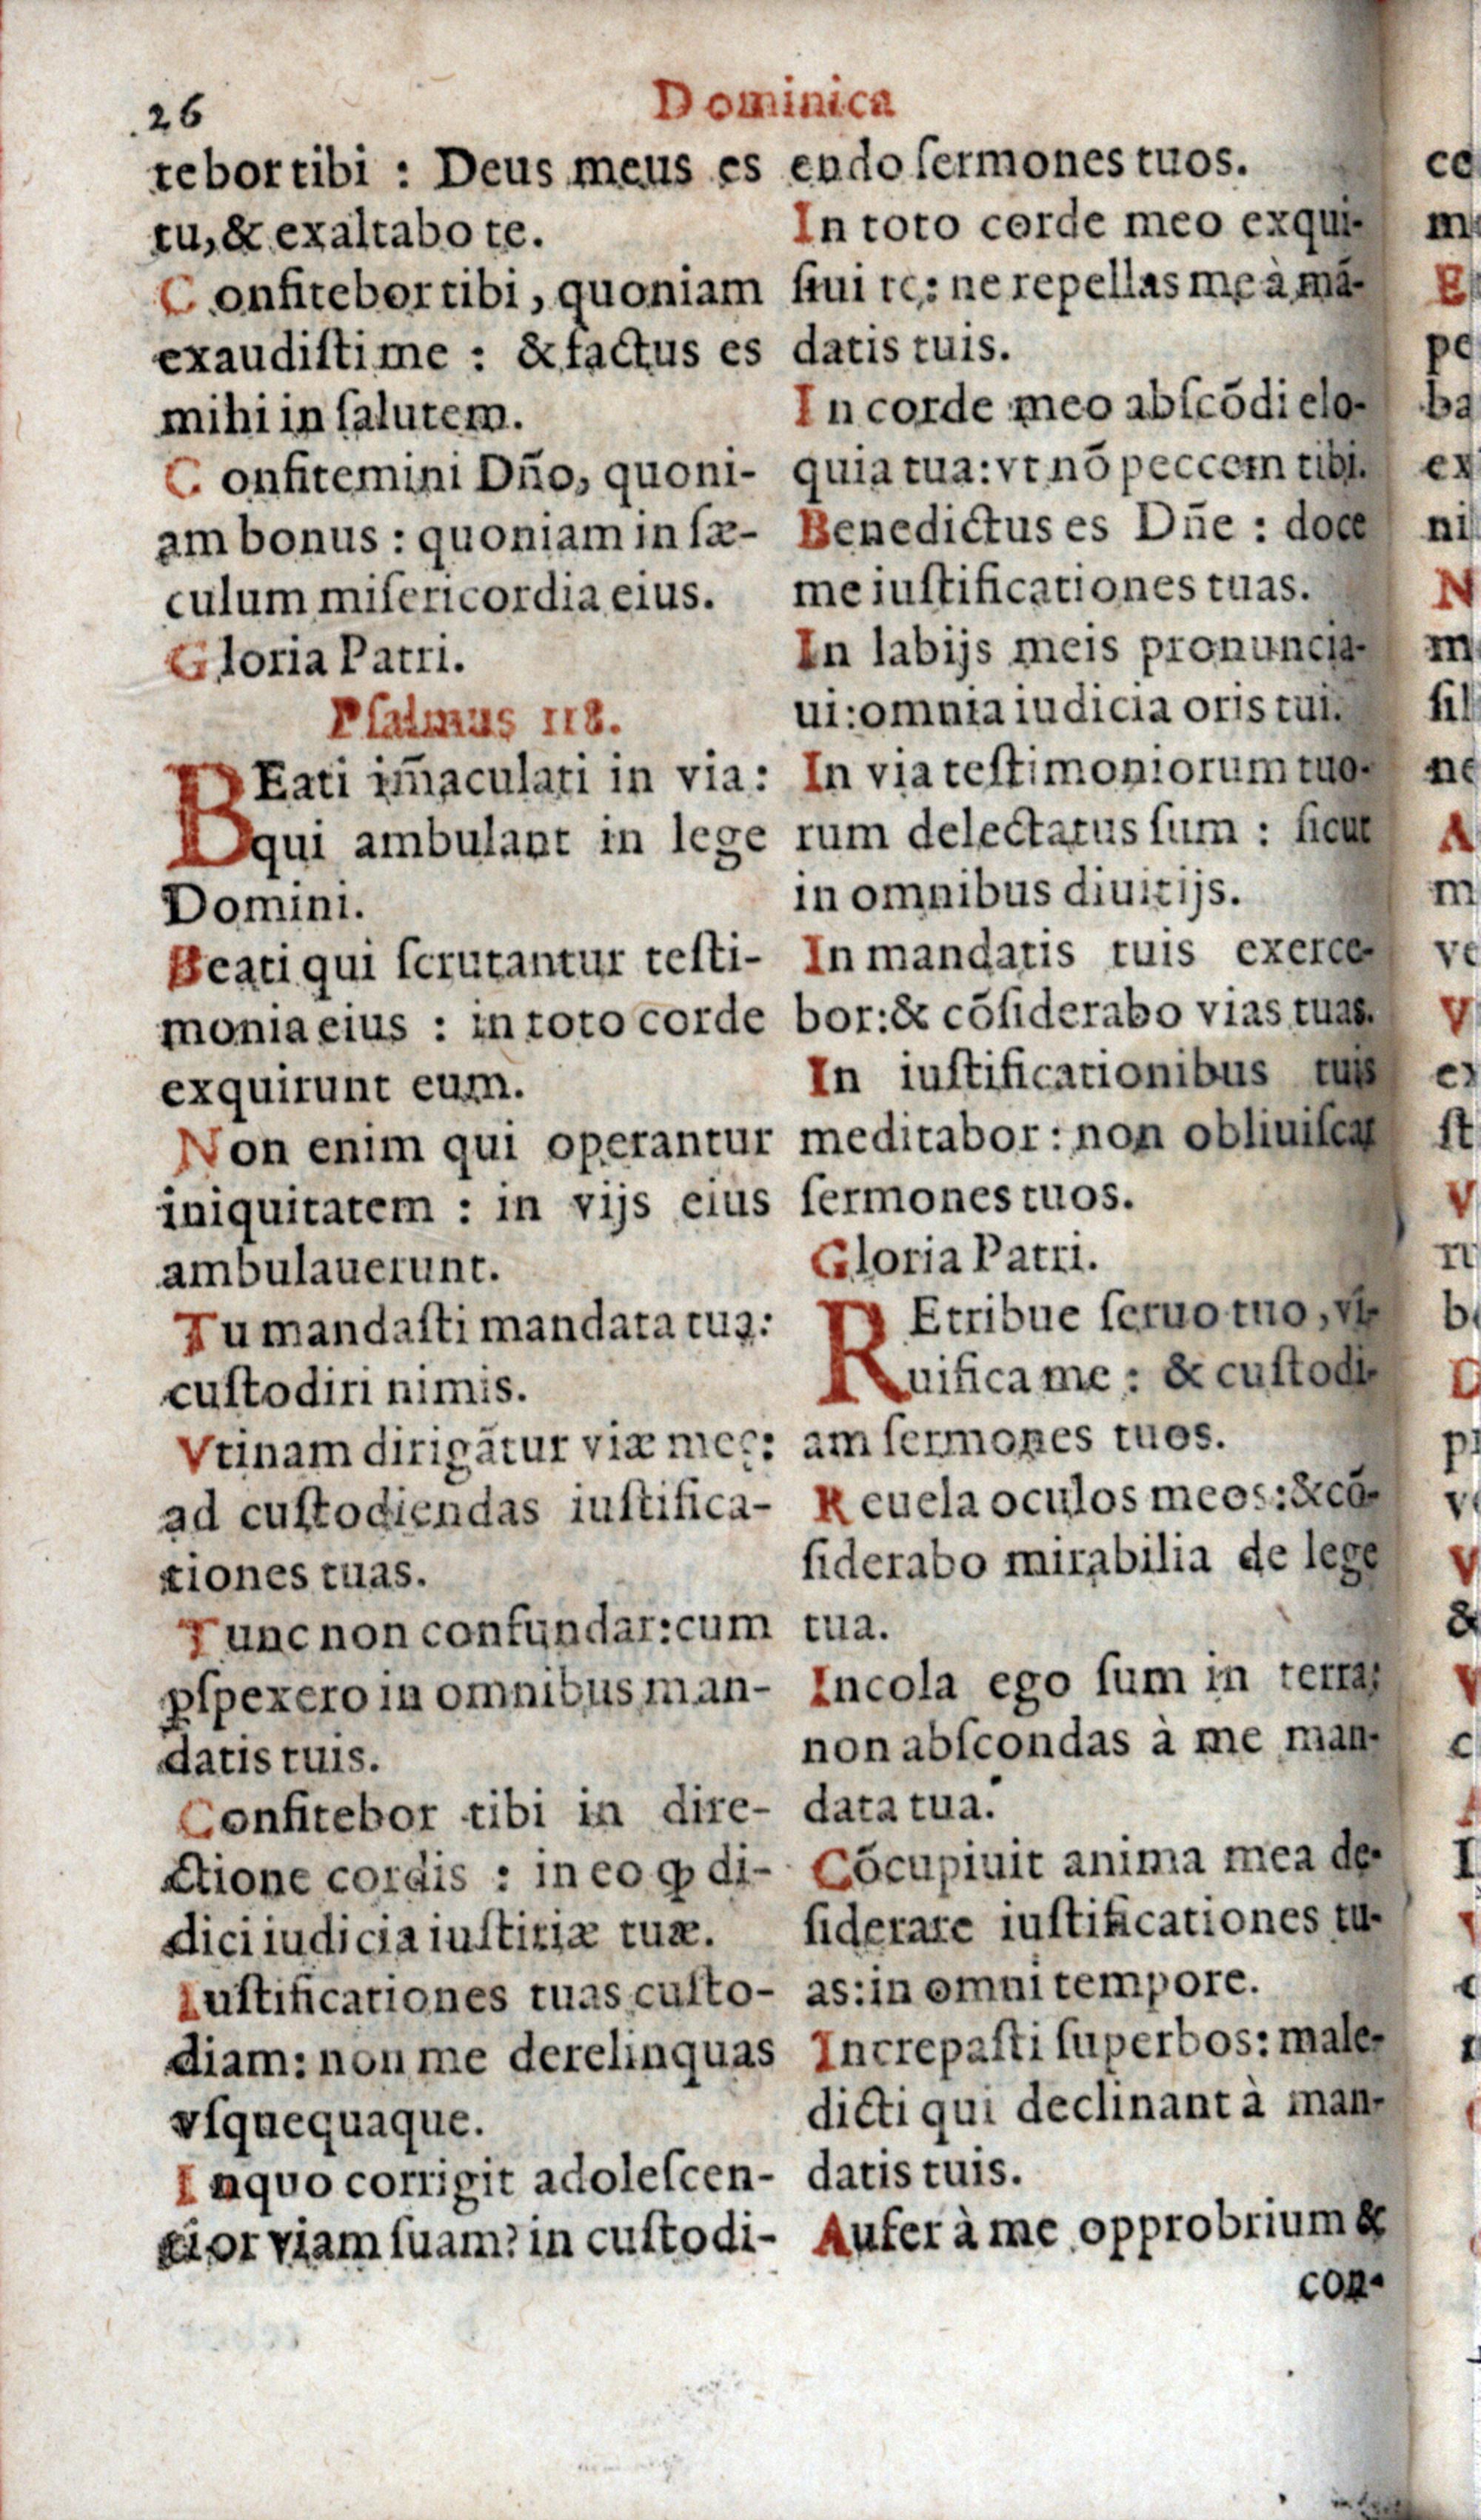 26
Dominica
tebor tibi : Deus meus es
tu, & exaltabo te.
Confitebor tibi, quoniam
exaudiſti me : & factus es
mihi in ſalutem.
Confitemini Dño, quoni-
am bonus : quoniam in ſæ-
culum miſericordia eius.
Gloria Patri.
Pſalmus 118.
BEati im̃aculati in via:
qui ambulant in lege
Domini.
Beati qui ſcrutantur teſti-
monia eius : in toto corde
exquirunt eum.
Non enim qui operantur
iniquitatem : in vijs eius
ambulauerunt.
Tu mandaſti mandata tua:
cuſtodiri nimis.
Vtinam dirigãtur viæ meę:
ad cuſtodiendas iuſtifica-
tiones tuas.
Tunc non confundar: cum
ꝑſpexero in omnibus man-
datis tuis.
Confitebor tibi in dire-
ctione cordis : in eo ꝙ di-
dici iudicia iuſtitiæ tuæ.
Iuſtificationes tuas cuſto-
diam: non me derelinquas
vſquequaque.
In quo corrigit adoleſcen-
tior viam ſuam? in cuſtodi-
endo ſermones tuos.
In toto corde meo exqui-
ſiui te: ne repellas me à mã-
datis tuis.
In corde meo abſcõdi elo-
quia tua: vt nõ peccem tibi.
Benedictus es Dñe : doce
me iuſtificationes tuas.
In labijs meis pronuncia-
ui: omnia iudicia oris tui.
In via teſtimoniorum tuo-
rum delectatus ſum : ſicut
in omnibus diuitijs.
In mandatis tuis exerce-
bor: & cõſiderabo vias tuas.
In iuſtificationibus tuis
meditabor : non obliuiſcar
ſermones tuos.
Gloria Patri.
REtribue ſeruo tuo, vi-
uifica me : & cuſtodi-
am ſermones tuos.
Reuela oculos meos: & cõ-
ſiderabo mirabilia de lege
tua.
Incola ego ſum in terra:
non abſcondas à me man-
data tua.
Cõcupiuit anima mea de-
ſiderare iuſtificationes tu-
as: in omni tempore.
Increpaſti ſuperbos: male-
dicti qui declinant à man-
datis tuis.
Aufer à me opprobrium &
con-